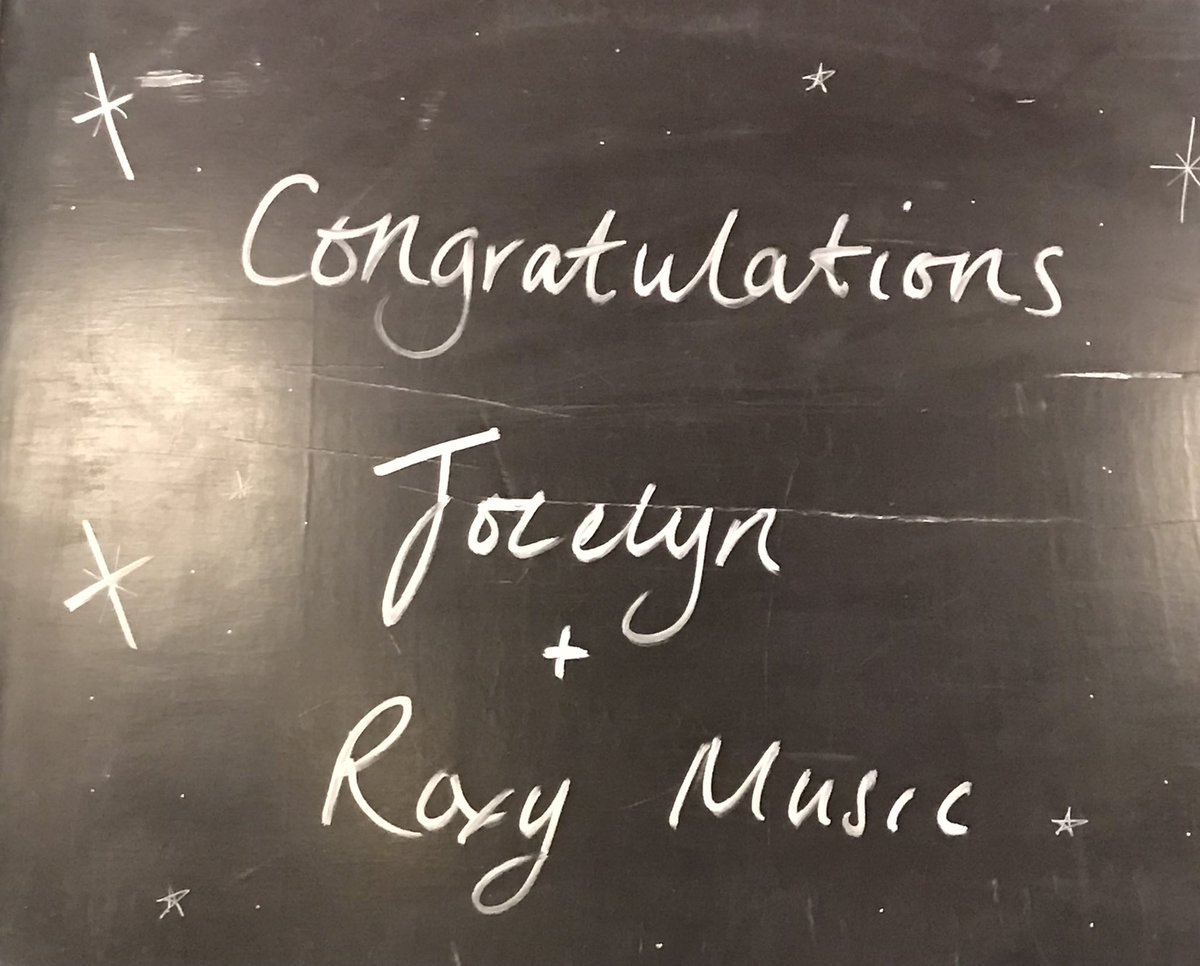 Congratulations
Jocelyn
+
Roxy Music